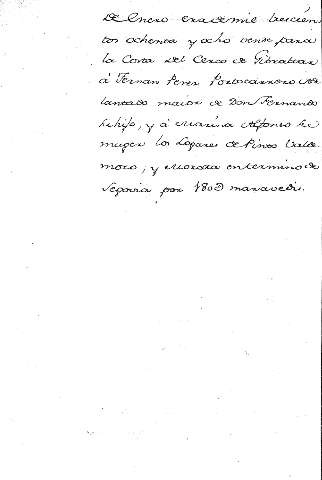 de Enero era de mil trecien
tos ochenta y ocho vende para
la Costa del Cerco de Gibraltar
á Fernan Perez Portocarrero Ade
lantado maior de Don Fernando
su hijo, y á Marina Alfonso su
muger los Logares de Pinto Valde
moro, y Morata en termino de
Segovia por 180 maravedis.